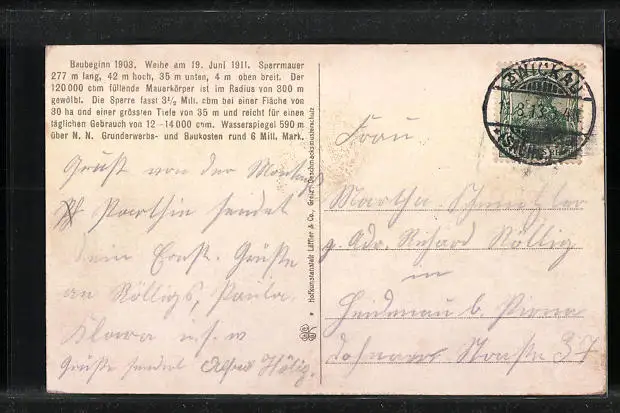 Baubeginn 1903. Weihe am 19. Juni 1911. Sperrmauer
277 m lang, 42 m hoch, 35 m unten, 4 m oben breit. Der
120 000 cbm füllende Mauerkörper ist im Radius von 300 m
gewölbt. Die Sperre fasst 3½ Mill. cbm bei einer Fläche von
30 ha und einer grössten Tiefe von 35 m und reicht für einen
täglichen Gebrauch von 12–14 000 cbm. Wasserspiegel 590 m
über N. N. Grunderwerbs- und Baukosten rund 6 Mill. Mark.
Gruß von der
Parthie sendet
Dein Ernst. Grüße
an Rölligs, Paula,
Klara u.s.w
Grüße sendet Alfred
* Hofkunstanstalt Löffler & Co., Greiz. Geschmacksmusterschutz
ZWICKAU
8.13
(SACHSEN)
Frau
Martha
p. Adr. Richard Röllig
in
Heidenau b. Pirna
Dohnaer Straße 37